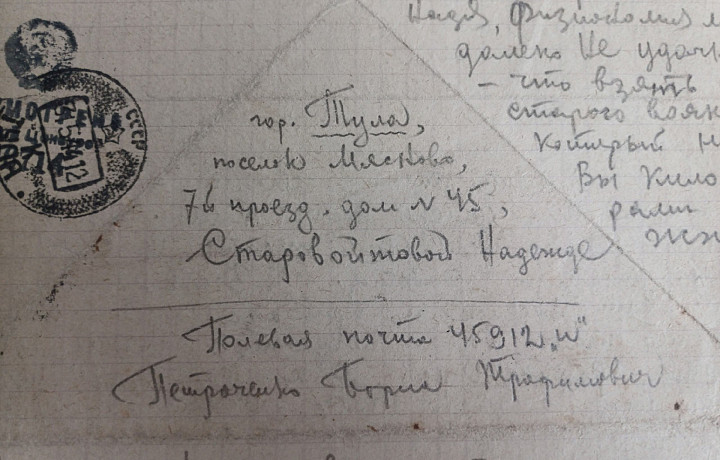 Надя, физиономия
далеко не удачн
– что взять
старого вояк
который н
Вы кило
СССР
гор. Тула,
поселок Мясново,
7й проезд. дом N 45,
Старовойтовой Надежде
Полевая почта 45912 „и"
Петраченко Борис Трофимович